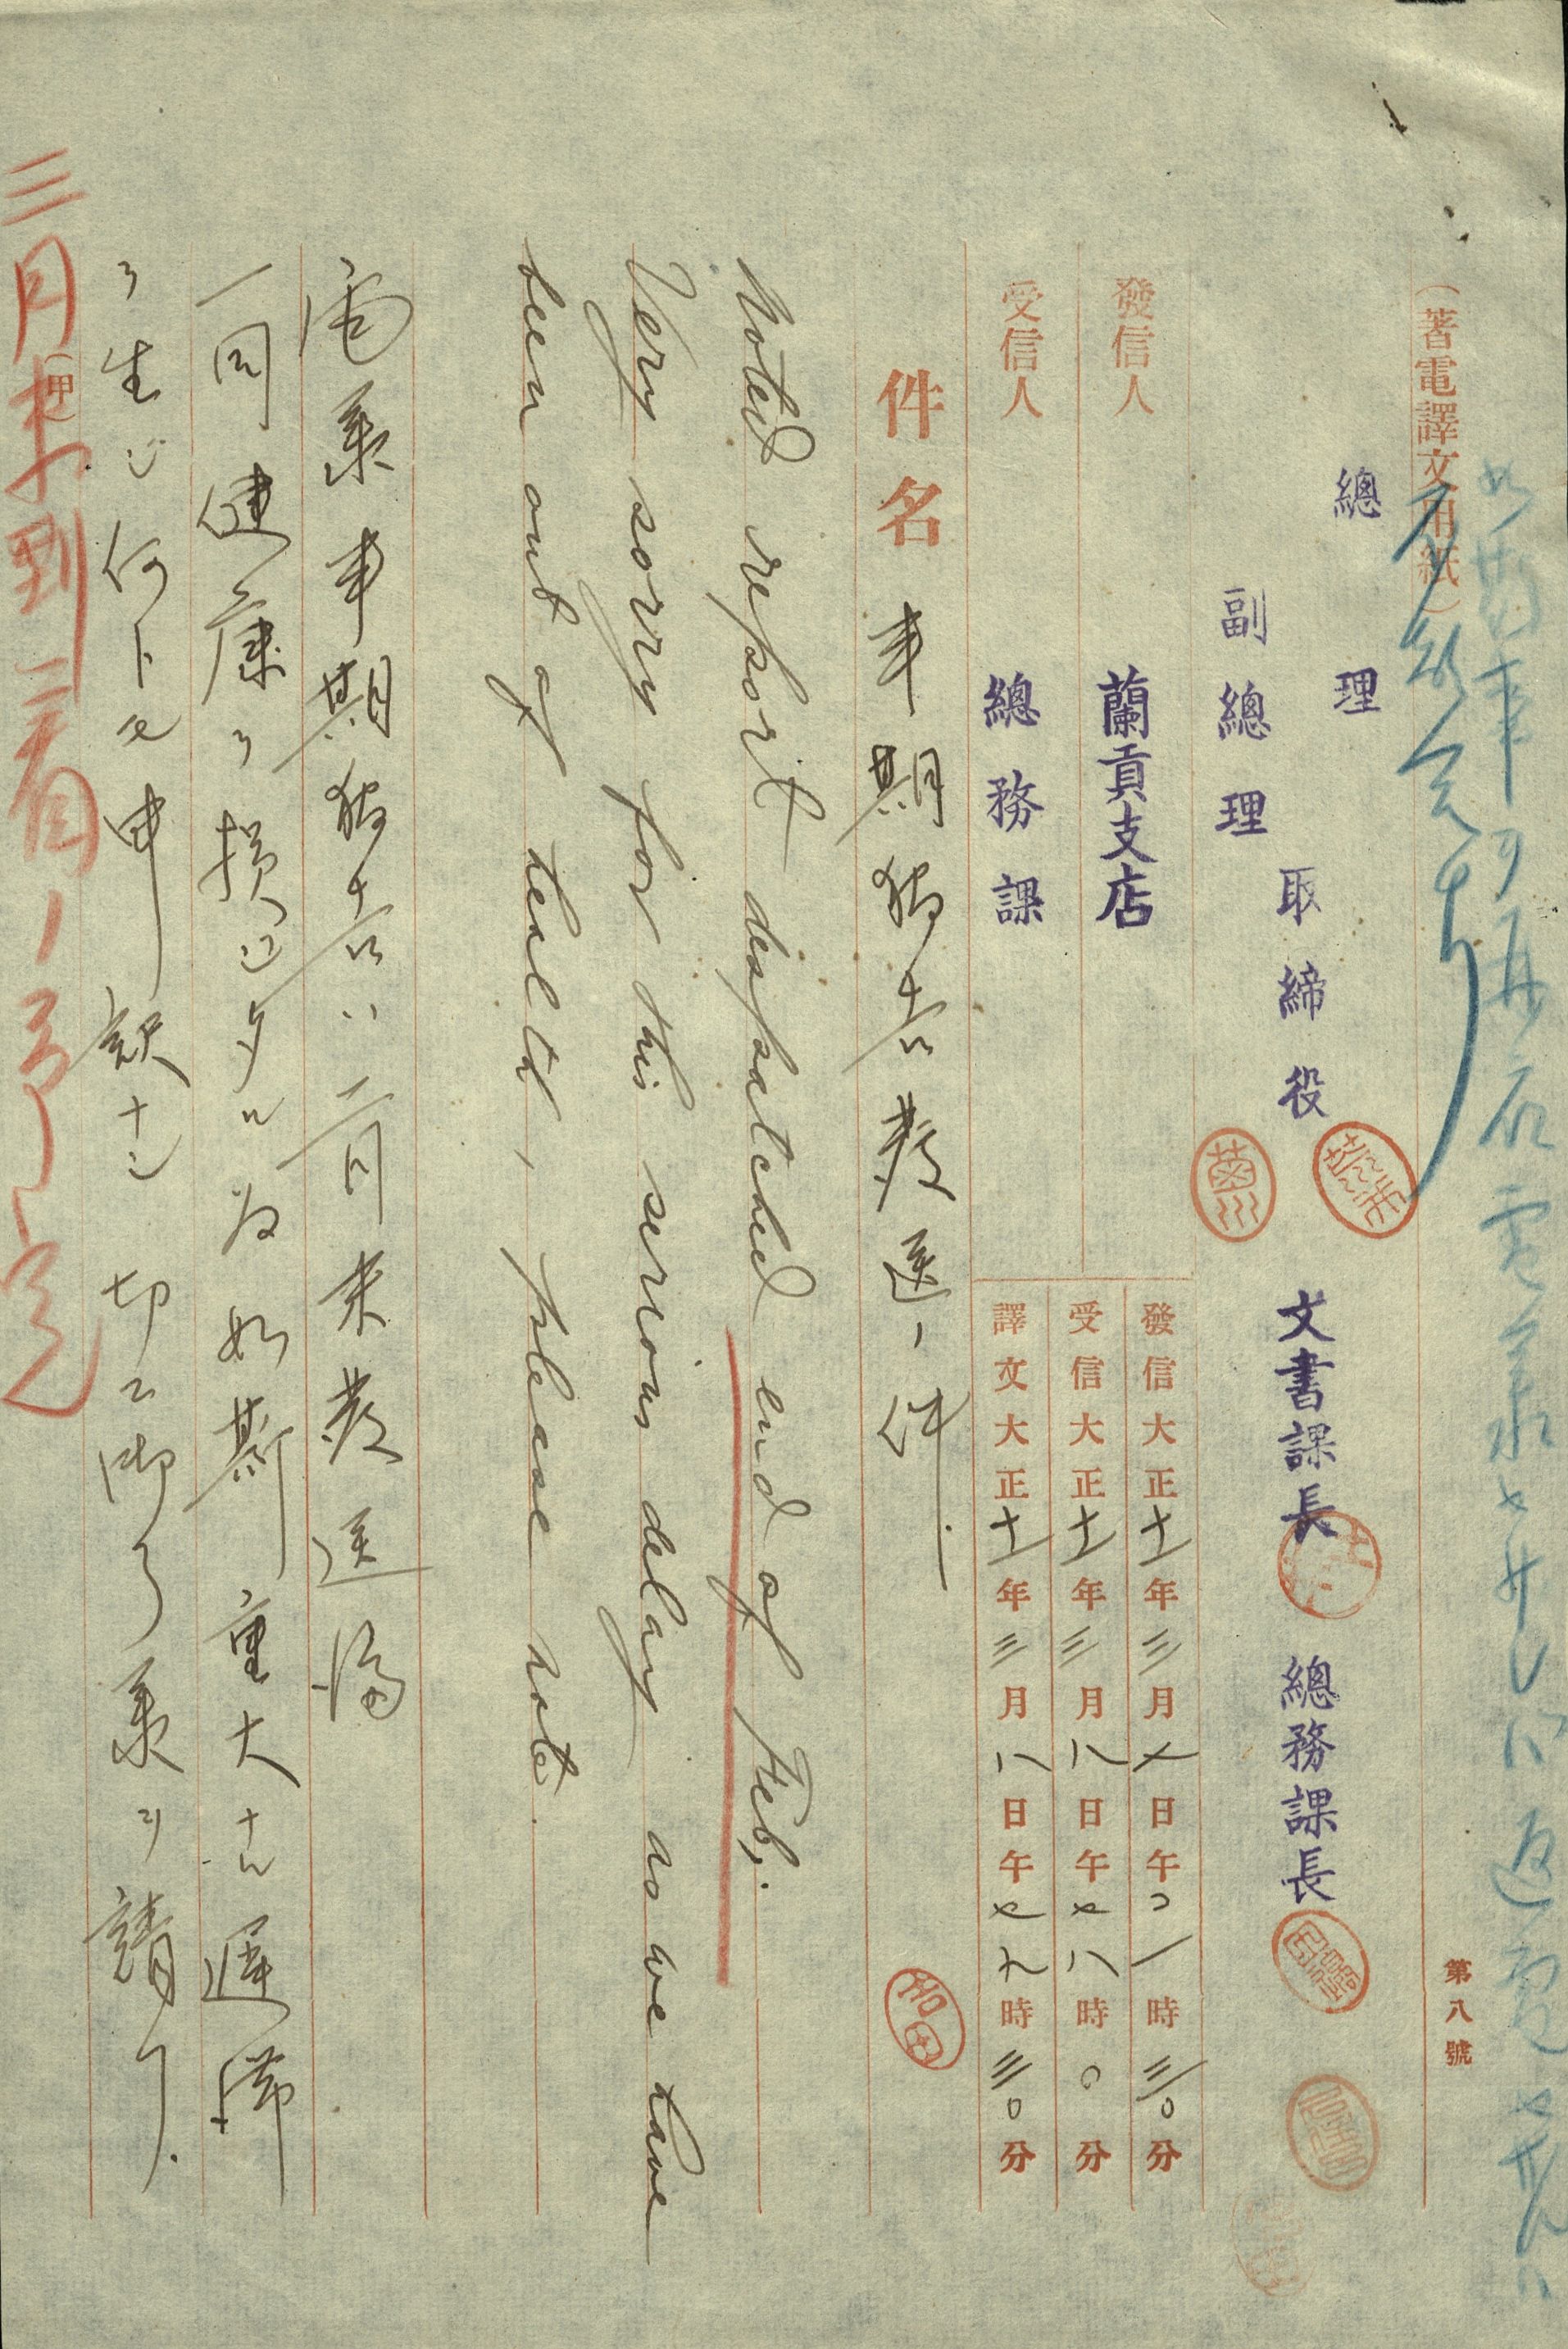 第八號
(著電譯文用紙)
總理
取締役
副總理
文書課長
總務課長
發信人 蘭貢支店
受信人 總務課
發信大正十一年三月七日午后一時三〇分
受信大正十一年三月八日午前八時〇分
譯文大正十一年三月八日午前九時三〇分
件名 半期報告發送ノ件
Noted report despatched end of Feb.
Very sorry for this serious delay as we have
been out of health, please note.
電承半期報告ハ二月末發送濟
一同健康ヲ損シタル為如斯重大ナル遲滯
ヲ生シ何トモ申訳ナシ 切ニ御了承ヲ請フ
(甲)
三月末到着ノ予定